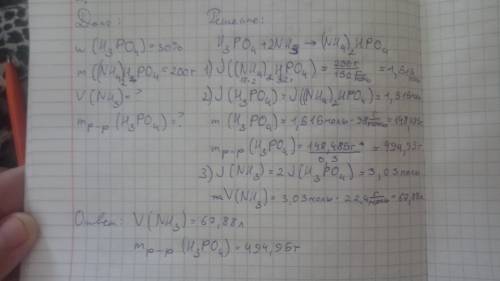 Дано:
w(H₃PO₄)=30%
m((NH₄)₂HPO₄=200г
V(NH₃)=?
m р-р(H₃PO₄)=?
Решение:
H₃PO₄+2NH₃→(NH₄)₂HPO₄
1) ν((NH₄)₂HPO₄)= 200г =1,515
2) ν(H₃PO₄)=ν((NH₄)₂HPO₄)=1,515моль
m(H₃PO₄)=1,515моль·98 г/моль=
m р-р(H₃PO₄)= 148,485г / 0,3 =494,95г
3) ν(NH₃)=2ν(H₃PO₄)=3,03моль
V(NH₃)=3,03моль·22,4 =67,88л
Ответ: V(NH₃)=67,88л
m р-р(H₃PO₄)=494,95г